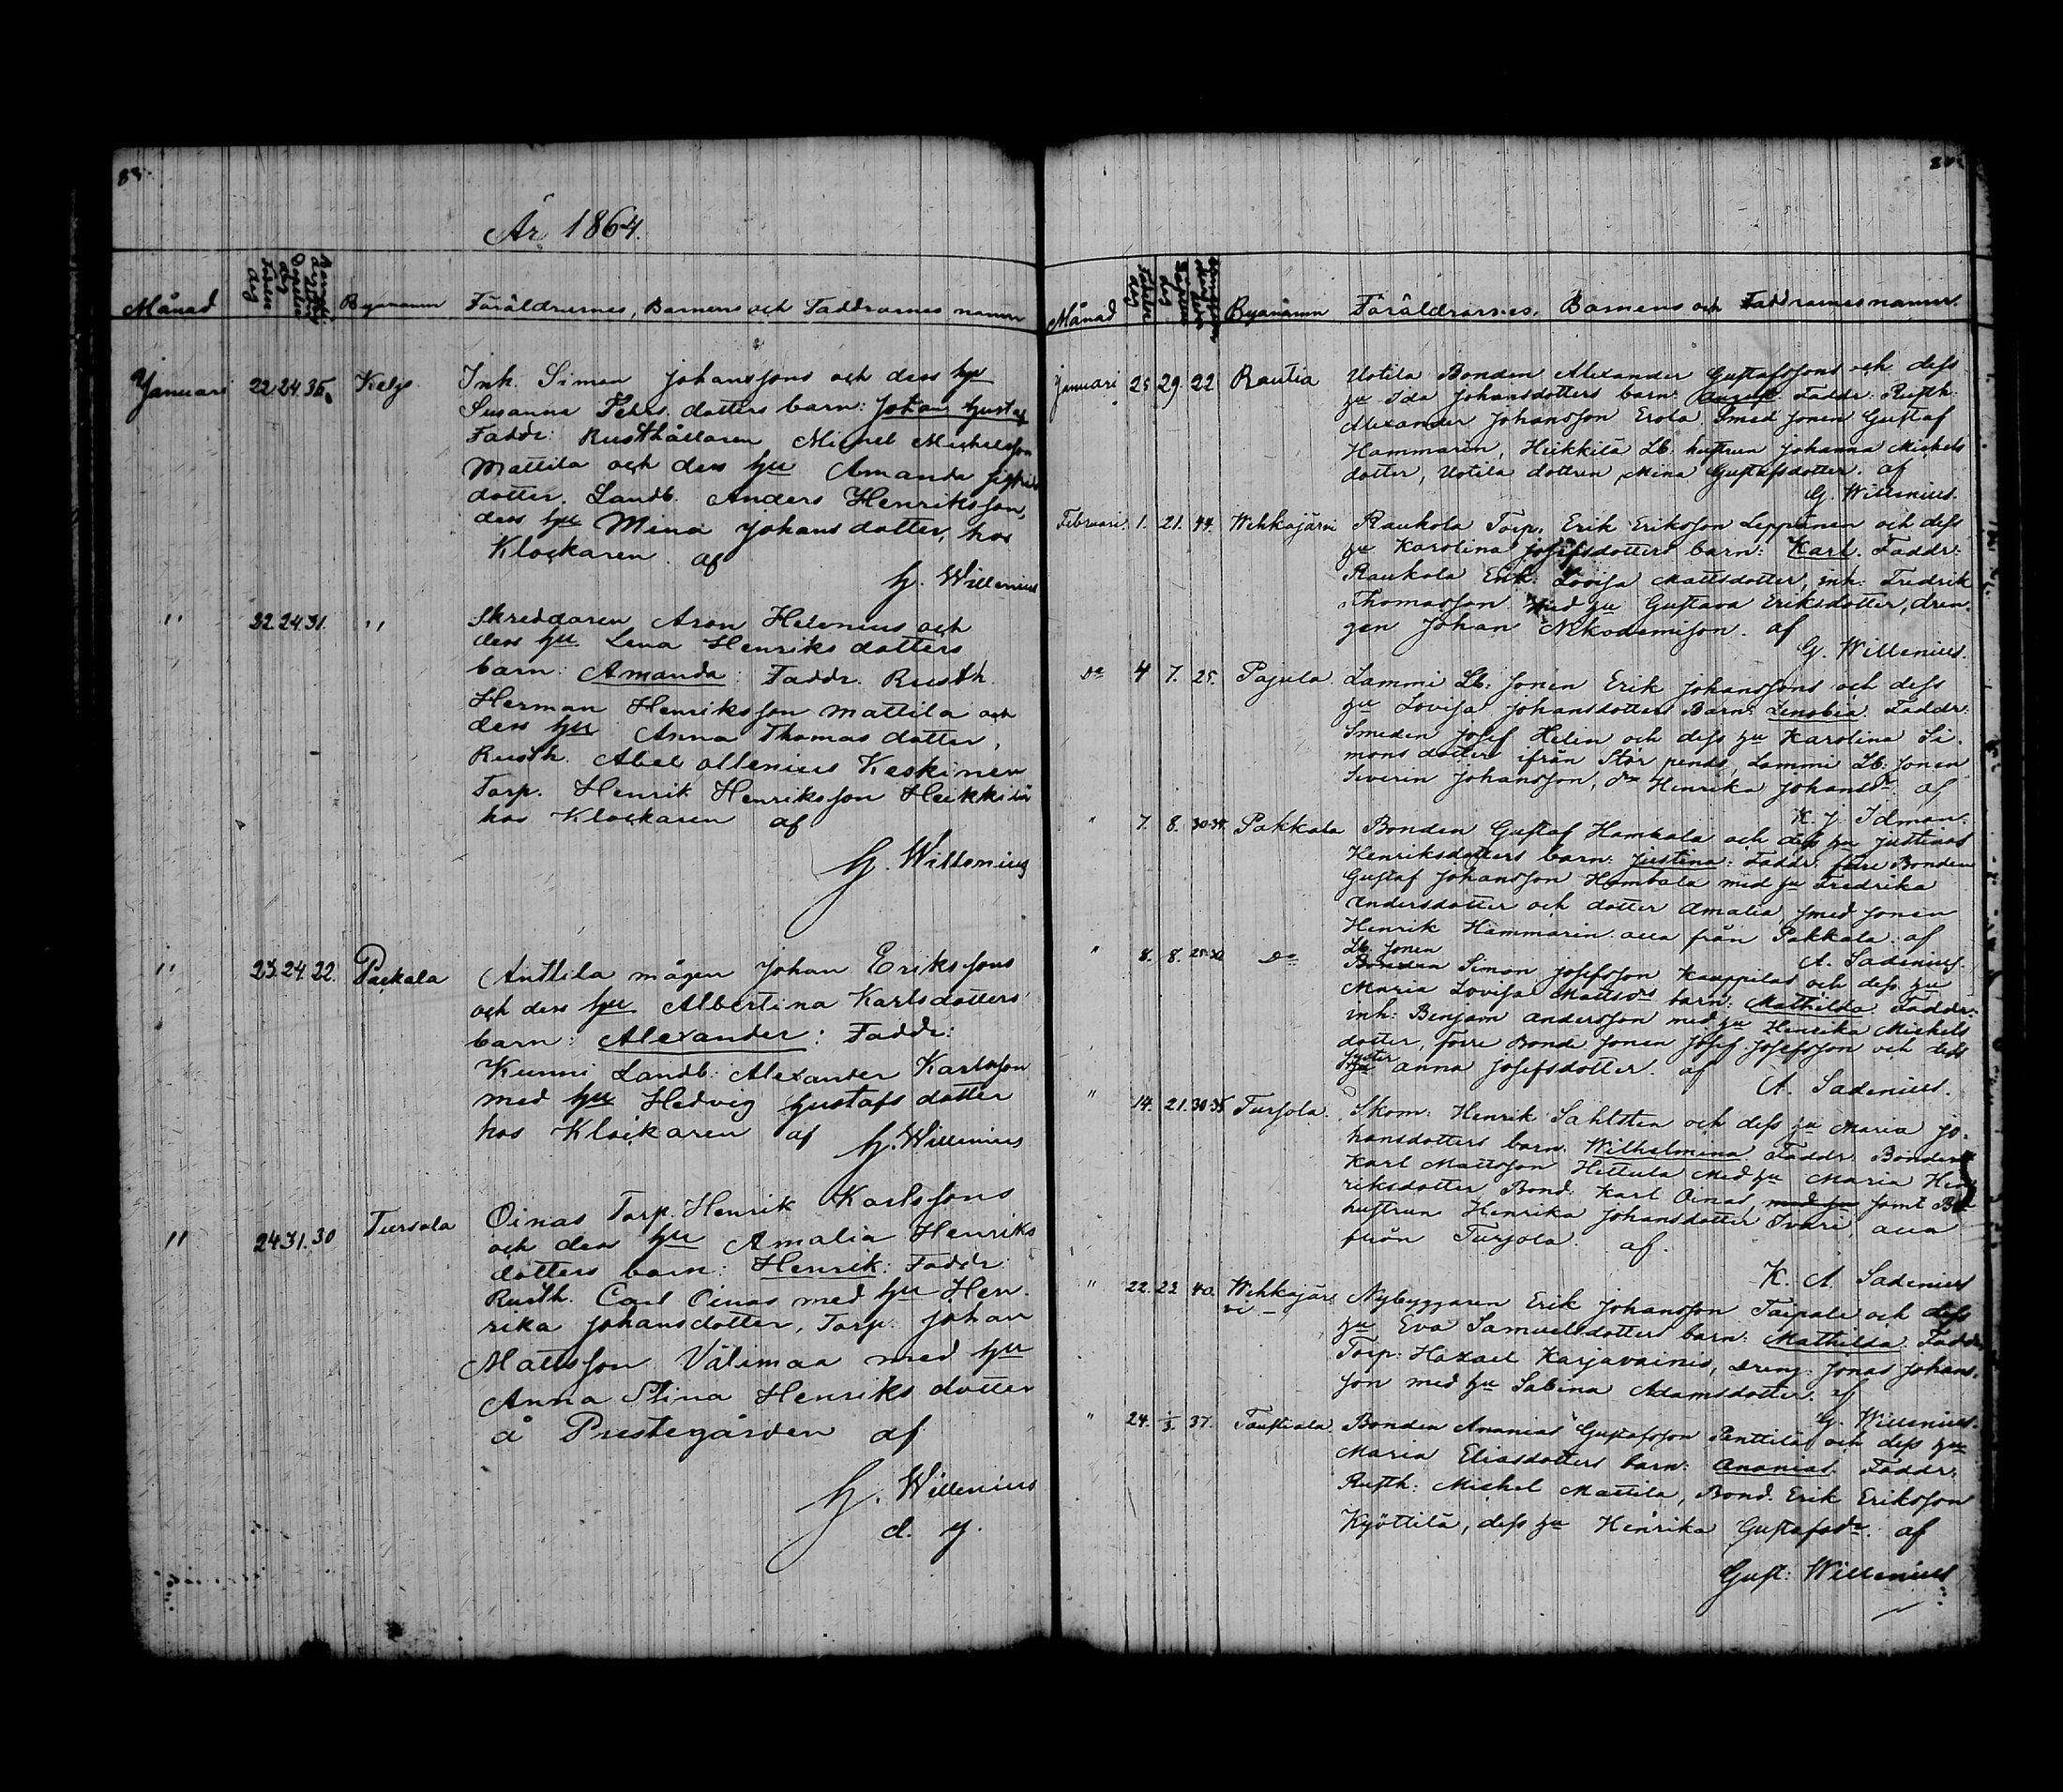 83.
År 1864.
Månad Födelse dag Byanamn Föräldrarnes, Barnens och Faddrarnes namn
Januari 22 24 36. Keljo Inh. Simon Johanssons och dess hu
Susanna Pehrs dotters barn: Johan Gustaf
Faddr: Rusthållaren Michel Michelsson
Mattila och dess hu Amanda Sigfrids
dotter. Landb. Anders Henriksson,
dess hu Mina Johans dotter, hos
Klockaren af
G. Willenius
" 22. 24 31. " Skreddaren Aron Helenius och
dess hu Lena Henriks dotters
barn: Amanda: Faddr. Rusth.
Herman Henriksson Mattila och
dess hu Anna Thomas dotter,
Rusth. Abel Ollenius Keskinen
Torp. Henrik Henriksson Heikkilä
hos Klockaren af
G. Willenius
" 23. 24. 22. Packala Anttila mågen Johan Erikssons
och dess hu Albertina Karlsdotters
barn: Alexander: Faddr:
Kunni Landb: Alexander Karlsson
med hu Hedvig Gustafs dotter
hos Klockaren af G. Willenius
" 24 31. 30 Tursola Oinas Torp. Henrik Karlssons
och dess hu Amalia Henriks
dotters barn: Henrik: Faddr
Rusth. Carl Oinas med hu Hen-
rika Johansdotter, Torp. Johan
Mattsson Välimaa med hu
Anna Stina Henriks dotter
å Prestegården af
G. Willenius
d. y.
Månad Byanamn Föräldrarnes, Barnens och Faddrarnes namn
Januari 25 29. 22 Rautia Uotila Bonden Alexander Gustafssons och dess
hu Ida Johansdotters barn: August Faddr: Rusth.
Alexander Johansson Erola. Smed sonen Gustaf
Hammarin, Heikkilä Lb. hustrun Johanna Michels
dotter, Uotila dottren Mina Gustafsdotter. af
G. Willenius.
Februari 1. 21. 44. Wehkajärvi Raukola Torp. Erik Eriksson Leppänen och dess
hu Karolina Josefsdotters barn: Karl. Faddr:
Raukola Enk: Lovisa Mattsdotter, inh: Fredrik
Thomasson med hu Gustava Eriksdotter, dren-
gen Johan Nikodemison. af
G. Willenius.
Do 4 7. 25. Pajula. Lammi Lb: sonen Erik Johanssons och dess
hu Lovisa Johansdotters Barn: Zenobia. Faddr:
Smeden Josef Helin och dess hu Karolina Si-
mons dotter ifrån Stör pends, Lammi Lb: sonen
Severin Johansson, do Henrika Johansdr. af
K. J. Idman.
" 7. 8. 30-35. Pakkala Bonden Gustaf Hambala och dess hu Justinas
Henriksdotters barn: Justina: Faddr: förre Bonden
Gustaf Johansson Hambala med hu Fredrika
Andersdotter och dotter Amalia, smed sonen
Henrik Hammarin alla från Pakkala. af
A. Sadenius.
" 8. 8. 25-30 Do Lb. sonen
Bonden Simon Josefsson Kauppilas och dess hu
Maria Lovisa Mattsdrs barn: Mathilda. Faddr:
inh: Benjam Andersson med hu Henrika Michels
dotter, förre Bonde sonen Josef Josefsson och dess
syster
hu Anna Josefsdotter. af A. Sadenius.
" 14. 21. 30-35 Tursola. Skom: Henrik Sahlsten och dess hu Maria Jo-
hansdotters barn. Wilhelmina. Faddr: Bonden
Karl Mattsson Hittula med hu Maria Hen-
riksdotter, Bond. Karl Oinas, med hu samt
hustrun Henrika Johansdotter alla
från Tursola. af.
K. A. Sadenius
" 22. 23 40. Wehkajär-
vi - Nybyggaren Erik Johansson Taipale och dess
hu Eva Samuelsdotters barn: Mathilda. Faddr:
Torp: Haxael Karjavainio, dreng: Jonas Johans-
son med hu Sabina Adamsdotter. af
G. Willenius.
" 24. 37. Taustiala Bonden Ananias Gustafsson Penttilä och dess hu
Maria Eliasdotters barn: Ananias. Faddr:
Rusth: Michel Mattila, Bond. Erik Eriksson
Kyöttilä, dess hu Henrika Gustafsdr. af
Gust: Willenius